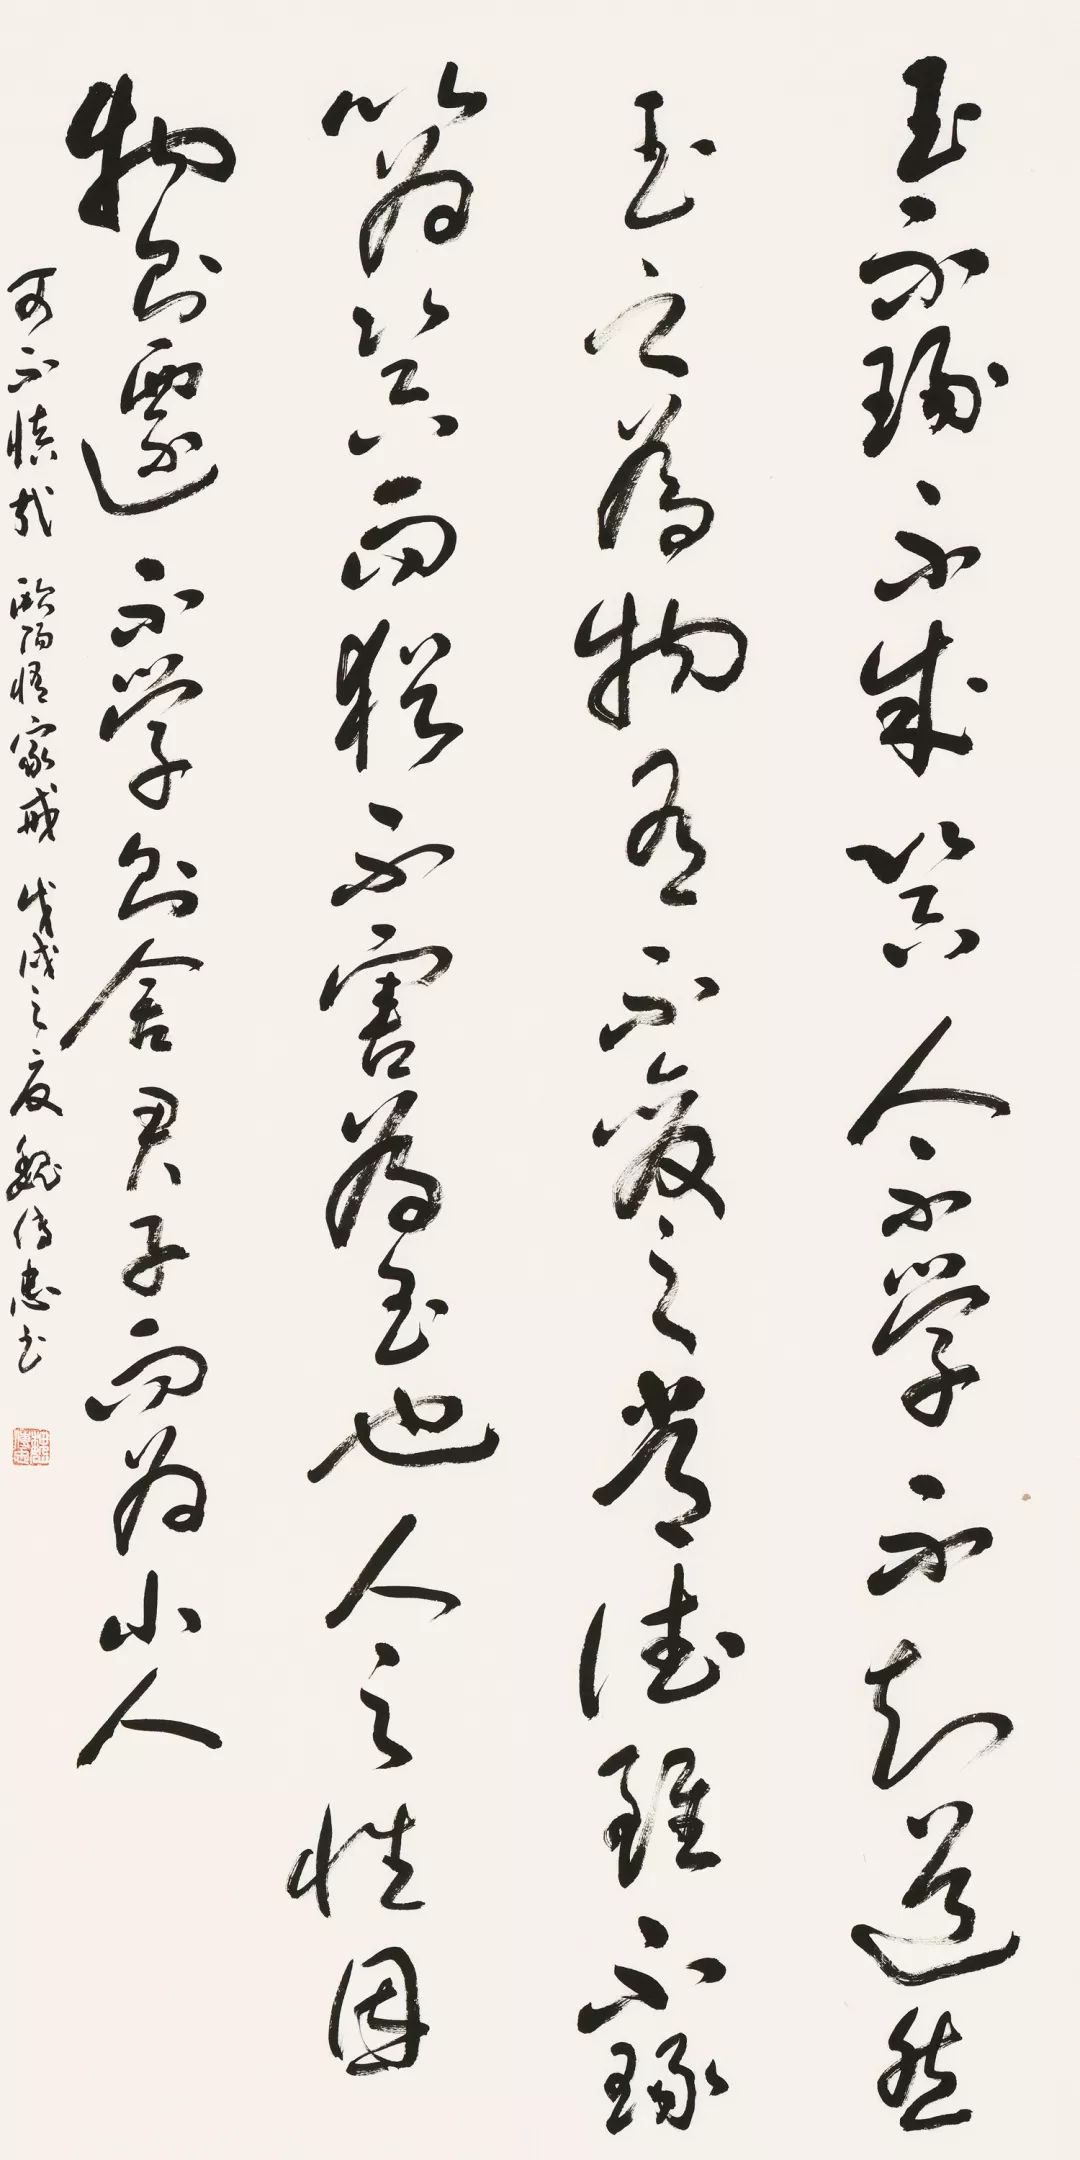 玉不琢不成器人不学不知道然
玉之為物有不變之常德雖不琢
以为器而猶不害為玉也人之性因
物則遷不学則舍君子而为小人
可不慎哉 歐陽脩家戒 戊戌之夏 魏傳忠书